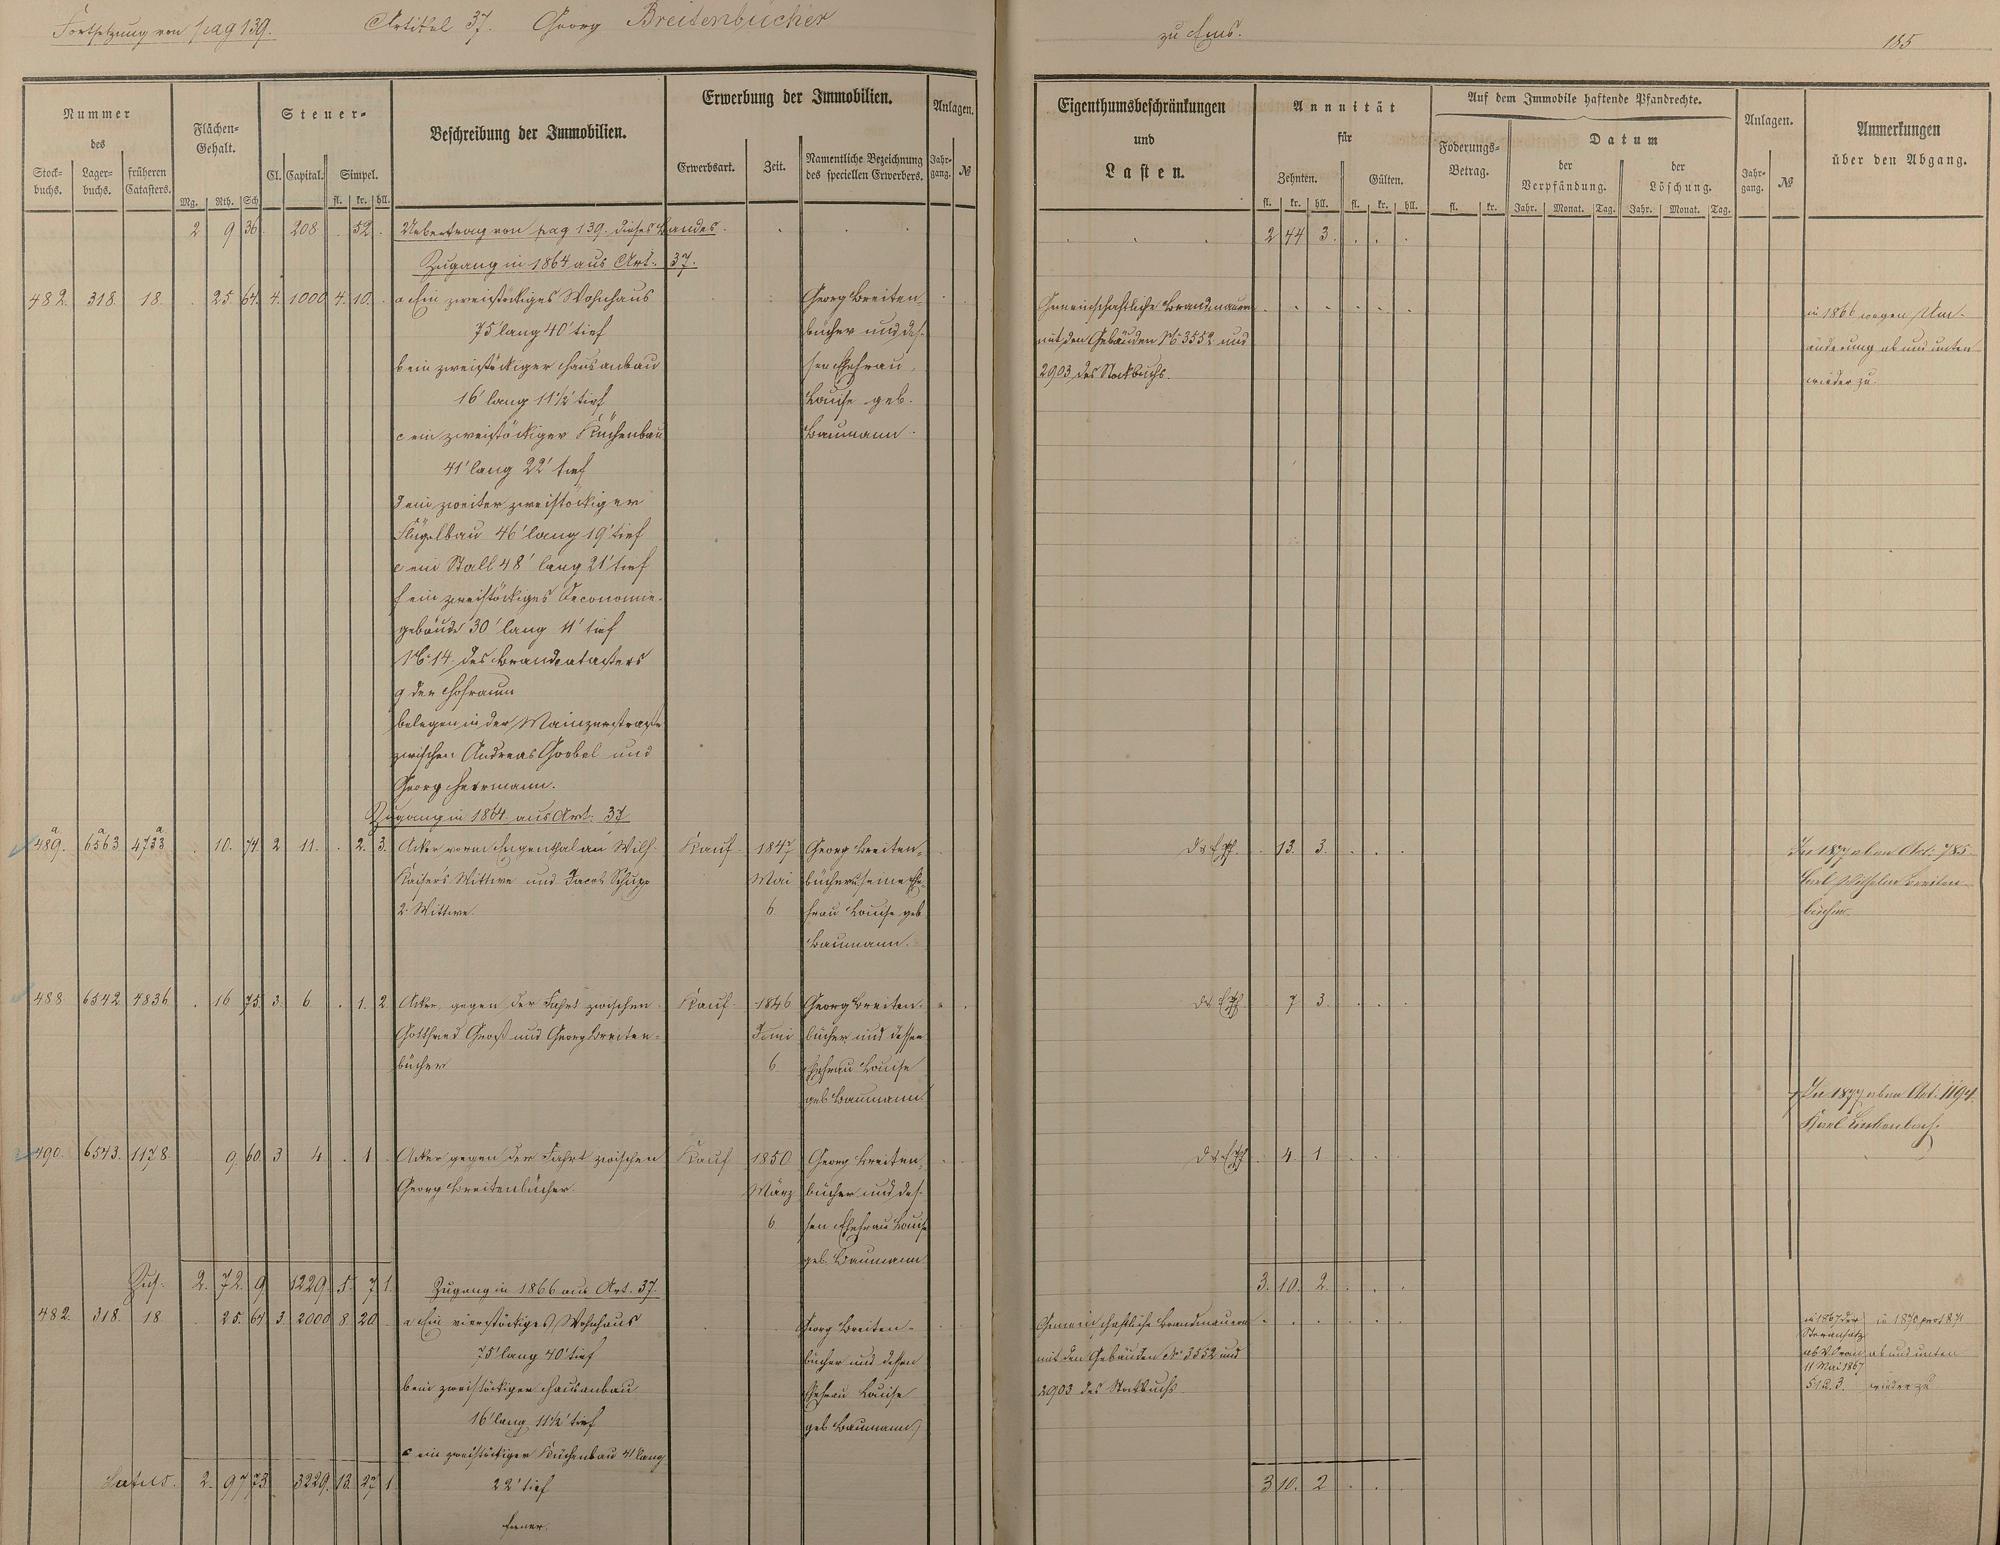 Fortsetzung von pag 139.
Artikel 37. Georg Breitenbücher
zu Ems.
185
Nummer
des
Stock-
buchs.
Lager-
buchs.
früheren
Catasters.
Flächen-
Gehalt.
Mg. Rth. Sch
Steuer-
Cl. Capital. Simpel.
fl. kr. hll.
Beschreibung der Immobilien.
Erwerbung der Immobilien.
Erwerbsart. Zeit.
Namentliche Bezeichnung
des speciellen Erwerbers.
Anlagen.
Jahr-
gang. №
Eigenthumsbeschränkungen
und
Lasten.
Annuität
für
Zehnten. Gülten.
fl. kr. hll. fl. kr. hll.
Auf dem Immobile haftende Pfandrechte.
Foderungs-
Betrag.
fl. kr.
Datum
der
Verpfändung.
der
Löschung.
Jahr. Monat. Tag. Jahr. Monat. Tag.
Anlagen.
Jahr-
gang. №
Anmerkungen
über den Abgang.
2 9 36 208 . 52 . Uebertrag von pag 139. dieses Bandes. 2 44 3
Zugang in 1864 aus Art. 37.
482. 318. 18. . 25. 64. 4. 1000 4. 10. . a Ein zweistöckiges Wohnhaus
75' lang 40' tief
b ein zweistöckiger Hausanbau
16' lang 11½' tief
c ein zweistöckiger Küchenbau
41' lang 22' tief
d ein zweiter zweistöckiger
Flügelbau 46' lang 19' tief
e ein Stall 48' lang 21' tief
f ein zweistöckiges Oeconomie-
gebäude 30' lang 11' tief
№ 14 des Brandcatasters
g der Hofraum
belegen in der Mainzerstraße
zwischen Andreas Goebel und
Georg Herrmann.
Georg Breiten-
bücher und des-
sen Ehefrau,
Louise geb.
Baumann.
Gemeinschaftliche Brandmauern
mit den Gebäuden № 3552 und
2903 des Stockbuchs.
in 1866 wegen Um-
änderung ab und unten
wieder zu.
Zugang in 1864. aus Art. 37
489.a 6563a 4733a . 10. 74 2 11. . 2. 3. Acker vorm Engenthal an Wilh.
Kaiser's Wittwe und Jacob Schupp
2. Wittwe.
Kauf 1847
Mai
6
Georg Breiten-
bücher u. seine Ehe-
frau Louise geb
Baumann.
13. 3.
In 1877 aben Art: 785
Carl Wilhelm Breiten-
bücher
488 6542 4836 . 16 75. 3 6 . 1. 2 Acker, gegen der Fahrt zwischen
Gottfried Groß und Georg Breiten-
bücher
Kauf 1846
Juni
6
Georg Breiten-
bücher und dessen
Ehefrau Louise
geb. Baumann
7 3.
In 1877 aben Art. 1194.
Karl Linkenbach.
490. 6543. 1178 9. 60 3 4 . 1 . Acker gegen der Fahrt zwischen
Georg Breitenbücher
Kauf 1850
März
6
Georg Breiten-
bücher und des-
sen Ehefrau Louise
geb. Baumann
4. 1
Zus. 2. 72. 9 1229. 5. 7 1. 3. 10. 2
Zugang in 1866 aus Art. 37.
482. 318. 18 . 25. 64 3. 2000 8 20. a Ein vierstöckiges Wohnhaus
75' lang 40' tief
b ein zweistöckiger Hausanbau
16' lang 11½' tief
c ein zweistöckiger Küchenbau 41' lang
22' tief
ferner.
Georg Breiten-
bücher und dessen
Ehefrau Louise
geb. Baumann
Gemeinschaftliche Brandmauern
mit den Gebäuden № 3552 und
2903 des Stockbuchs
in 1867 der
11 Mai 1867
ab und unten
wieder zu
Latus. 2. 97 73. 3229. 13. 27 1 3 10. 2